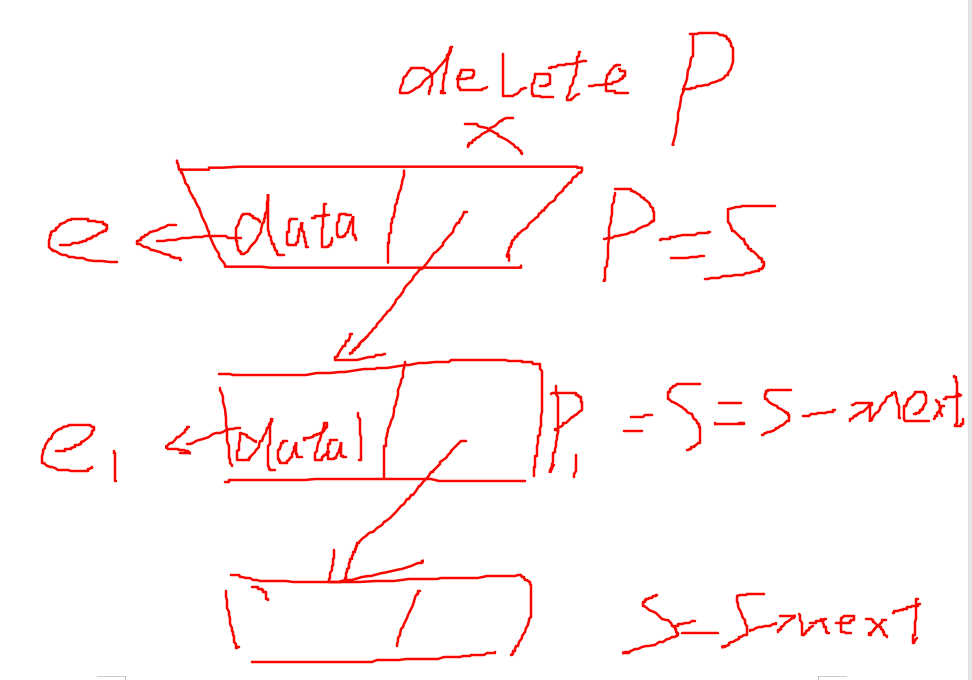 delete P
×
e ← data P=S
e₁ ← data1 P₁ = S = S→next
S=S→next